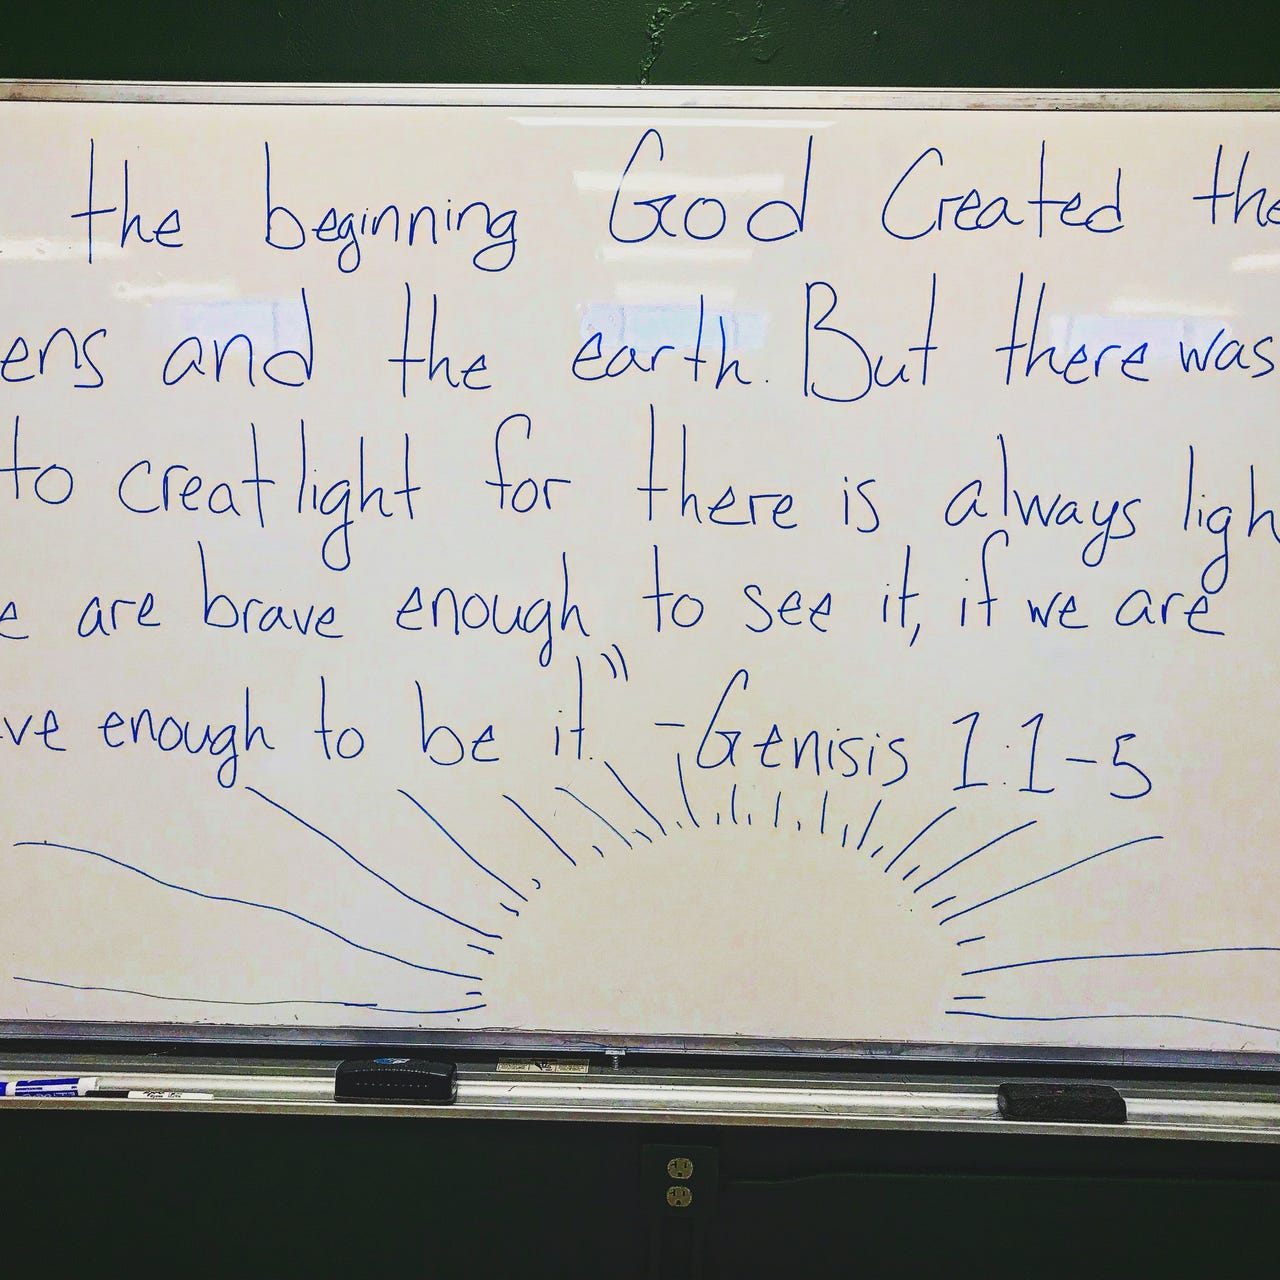 the beginning God Created the
ens and the earth. But there was
to creat light for there is always ligh
e are brave enough to see it, if we are
ve enough to be it." -Genisis 1:1-5